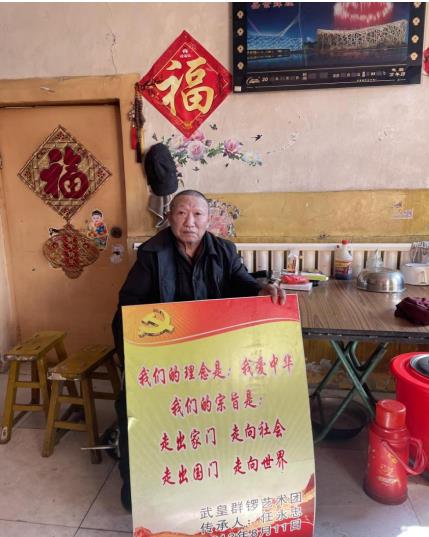 福
福
我们的理念是：我爱中华
我们的宗旨是：
走出家门 走向社会
走出国门 走向世界
武皇群锣艺术团
传承人：任永忠
8月11日